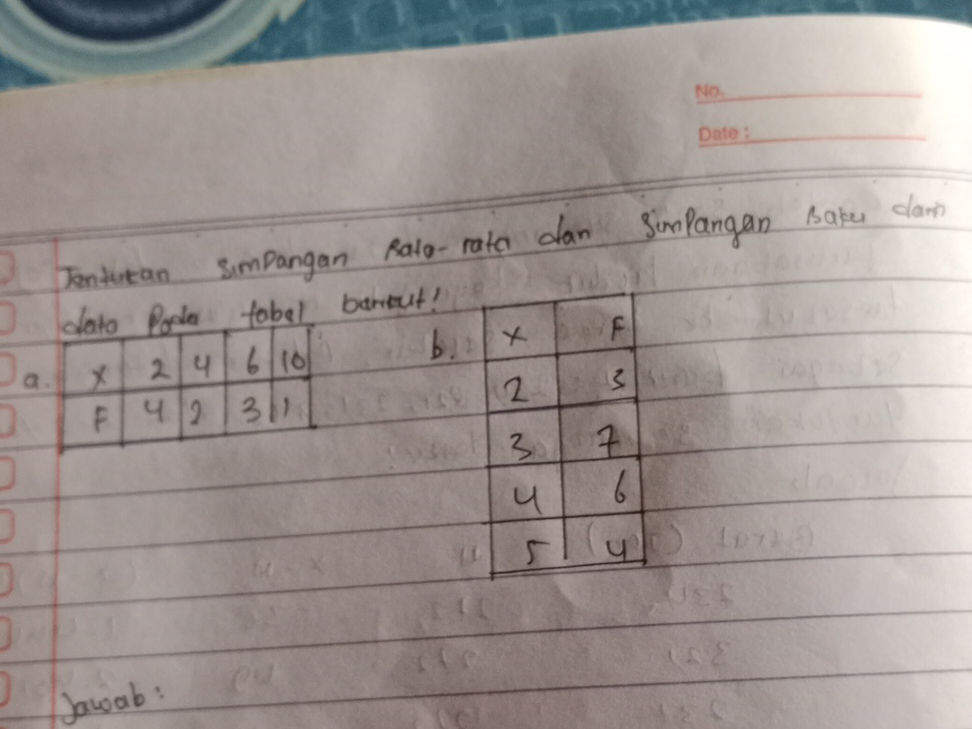 No.
Date :
Tentukan Simpangan Rata-rata dan Simpangan Baku dari
data Pada tabel berikut!
a. X 2 4 6 10
F 4 2 3 1
b. X F
2 3
3 7
4 6
5 4
Jawab :